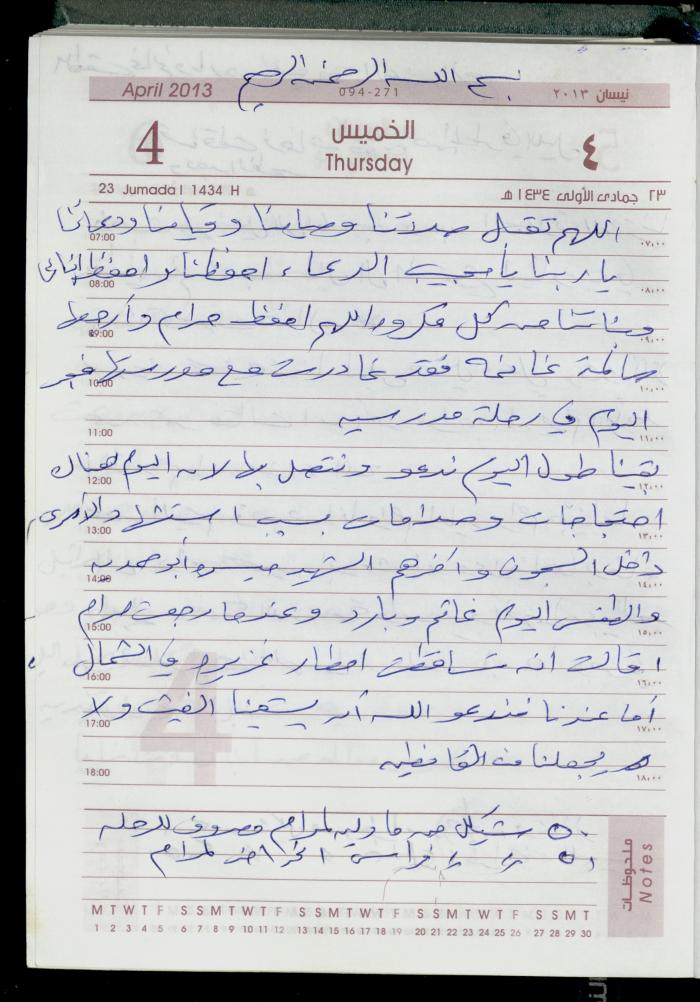 بسم الله الرحمن الرحيم
April 2013 094-271 نيسان ٢٠١٣
4 الخميس ٤
Thursday
23 Jumada I 1434 H ٢٣ جمادى الأولى ١٤٣٤ هـ
اللهم تقبل صلاتنا وصيامنا وقيامنا ودعائنا
07:00 ٠٧:٠٠
يا ربنا يا مجيب الدعاء احفظنا واحفظ ابنائي
08:00 ٠٨:٠٠
وبناتنا من كل مكروه اللهم احفظ مرام وأرجعها
09:00 ٠٩:٠٠
سالمة غانمة فقد غادرت مع مدرستها فجر
10:00 ١٠:٠٠
اليوم في رحلة مدرسيه
11:00 ١١:٠٠
بقينا طول اليوم ندعو ونتصل بها لانه اليوم هناك
12:00 ١٢:٠٠
احتجاجات وصدامات بسبب استشهاد الأسرى
13:00 ١٣:٠٠
داخل السجون واخرهم الشهيد ميسره أبو حمديه
14:00 ١٤:٠٠
والطقس اليوم غائم وبارد وعندما رجعت مرام
15:00 ١٥:٠٠
قالت انه تساقطت امطار غزيره في الشمال
16:00 ١٦:٠٠
أما عندنا فندعو الله أن يسقينا الغيث ولا
17:00 ١٧:٠٠
يجعلنا من القانطين
18:00 ١٨:٠٠
٥٠ شيكل من ماريه لمرام مصروف للرحله
٥٠ // // فراس لمرام
ملحوظات
Notes
M T W T F S S M T W T F S S M T W T F S S M T W T F S S M T
1 2 3 4 5 6 7 8 9 10 11 12 13 14 15 16 17 18 19 20 21 22 23 24 25 26 27 28 29 30